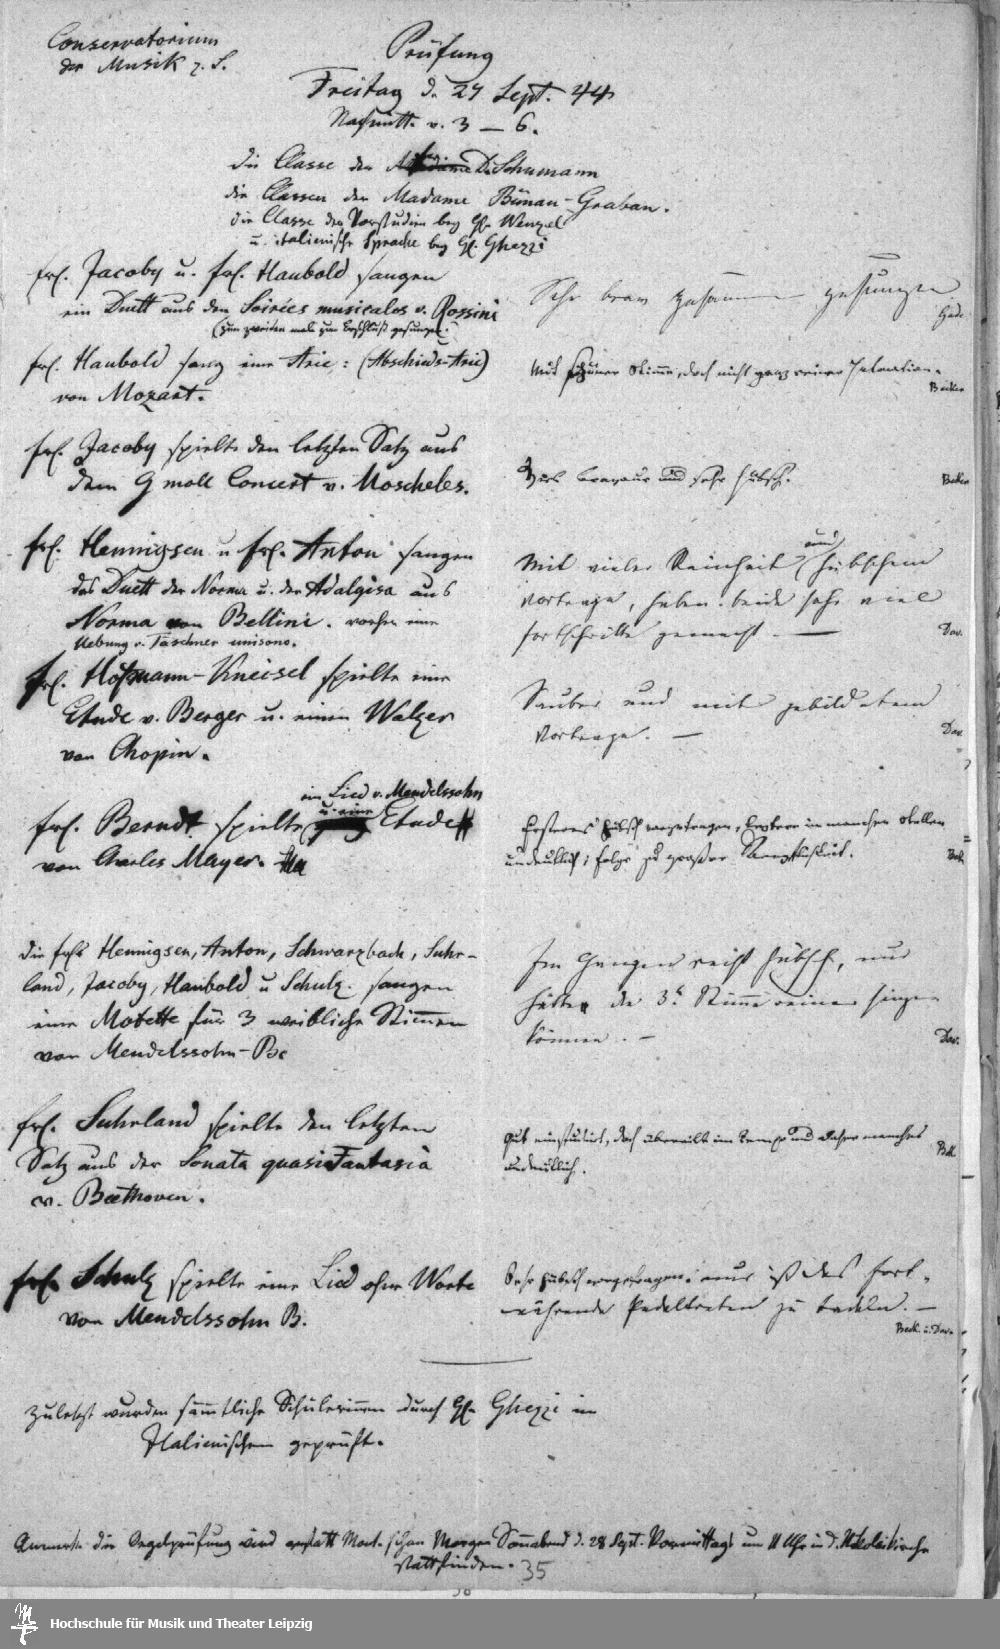 Conservatorium
der Musik z. L.
Prüfung
Freitag d. 27 Sept. 44
Nachmitt. v. 3 – 6.
die Classe der Madame Dr Schumann
die Classen der Madame Bünau-Grabau.
die Classe der Vorstudien bey H. Wenzel
u. italienische Sprache bey H. Ghezzi
frl. Jacoby u. frl. Haubold sangen
ein Duett aus den Soirées musicales v. Rossini
(zum zweiten male zum Beschluß gesungen.)
Sehr brav zusammen gesungen
frl. Haubold sang eine Arie: (Abschieds-Arie)
von Mozart.
Mit schöner Stimme, doch nicht ganz reiner Intonation.
Becker
frl. Jacoby spielte den letzten Satz aus
dem G moll Concert v. Moscheles.
bravour und sehr hübsch.
Becker
frl. Hennigsen u frl. Anton sangen
das Duett der Norma u. der Adalgisa aus
Norma von Bellini. vorher eine
Uebung v. Täschner unisono.
Mit vieler Reinheit und hübschem
Vortrage, haben beide sehr viel
fortschritte gemacht. —
Dav.
frl. Hofmann-Kneisel spielte eine
Etude v. Berger u. einen Walzer
von Chopin.
Sauber und mit gebildetem
Vortrage. —
Dav.
frl. Berndt spielte ein Lied v. Mendelssohn
u. eine Etude
von Charles Mayer.
Ersteres hübsch vorgetragen, letztere in manchen Stellen
undeutlich; Folge zu großer Aengstlichkeit.
Bck.
die frls Hennigsen, Anton, Schwarzbach, Suhr-
land, Jacoby, Haubold u Schulz. sangen
eine Motette für 3 weibliche Stimmen
von Mendelssohn-B
Im Ganzen recht hübsch, nur
hätte die 3te Stimme reiner singen
können. —
Dav.
frl. Suhrland spielte den letzten
Satz aus der Sonata quasi Fantasia
v. Beethoven.
Gut einstudirt, doch übereilt im Tempo und daher manches
undeutlich.
Bck.
frl. Schulz spielte eine Lied ohne Worte
von Mendelssohn B.
Sehr hübsch vorgetragen; nur ist das fort-
währende Pedaltreten zu tadeln. —
Beck. u. Dav.
Zuletzt wurden sämmtliche Schülerinnen durch H. Ghezzi im
Italienischen geprüft.
Anmerk. die Orgelprüfung wird anstatt Mont. schon Morgen Sonnabend d. 28 Sept. Vormittags um 11 Uhr in d. Nikolaikirche
stattfinden.
35
Hochschule für Musik und Theater Leipzig